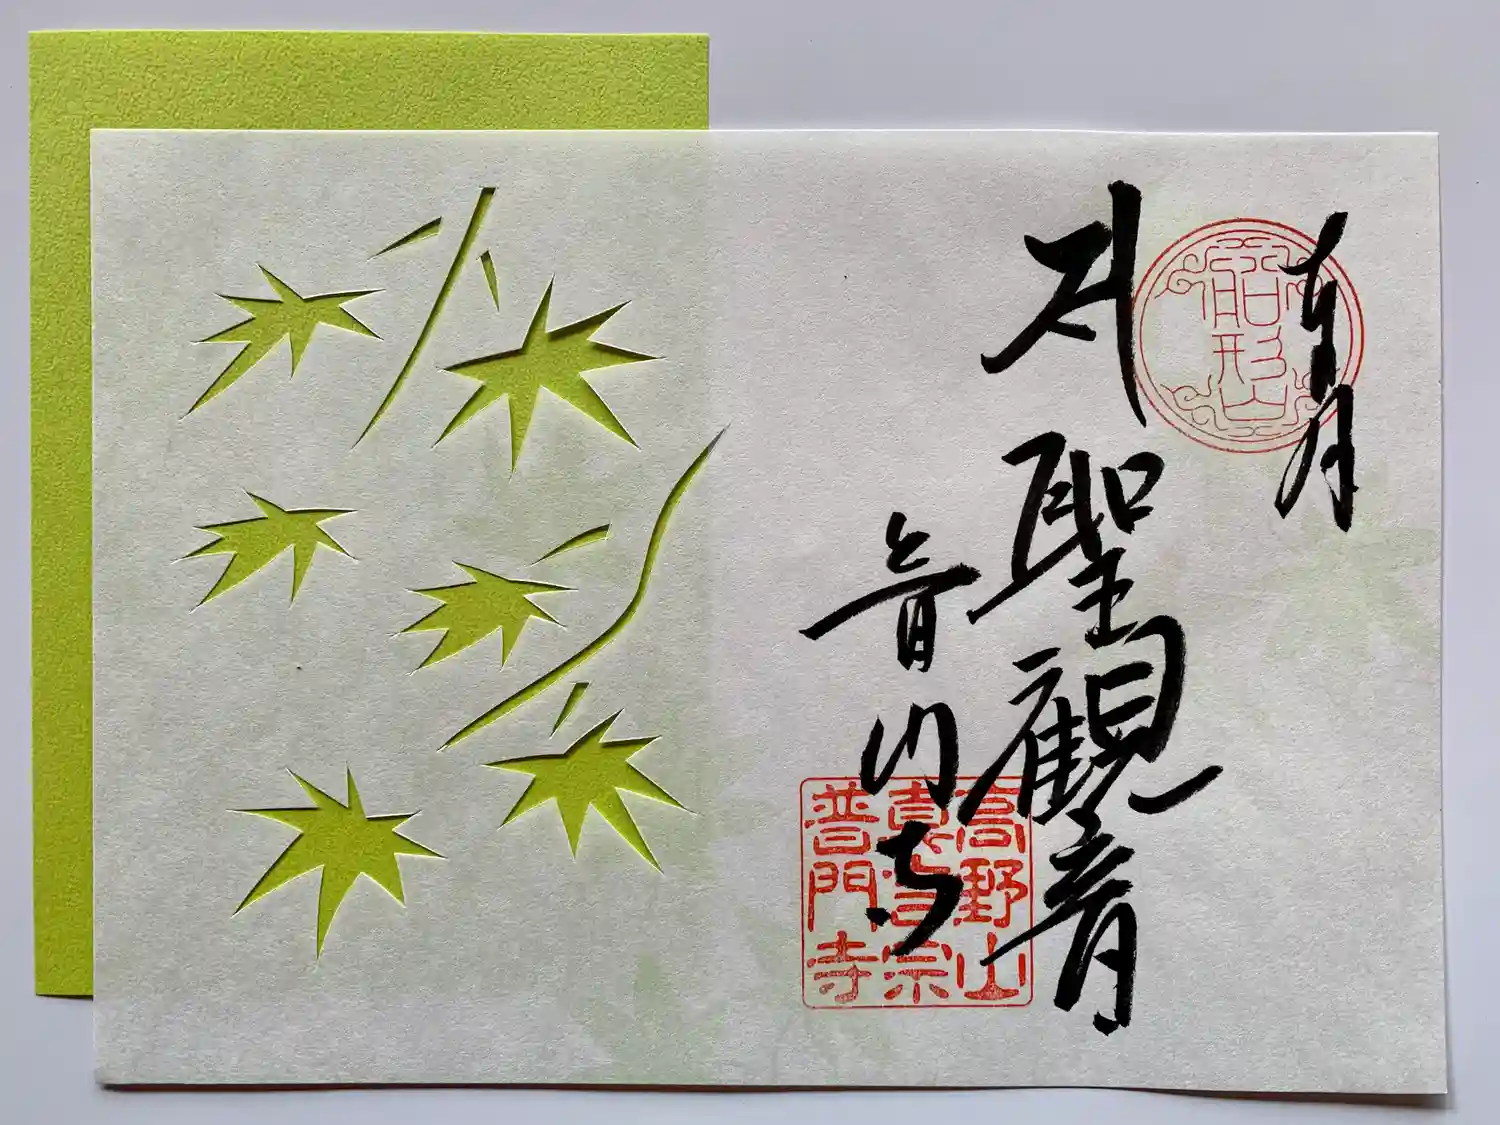 船形山
聖観音
普門寺
高野山
真言宗
普門寺